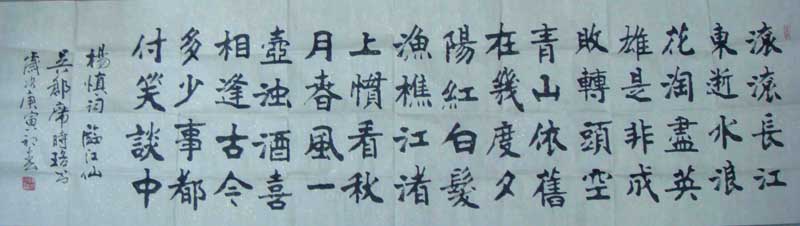 滚滚長江
東逝水浪
花淘盡英
雄是非成
敗轉頭空
青山依舊
在幾度夕
陽紅白髮
漁樵江渚
上慣看秋
月春風一
壺浊酒喜
相逢古今
多少事都
付笑談中
楊慎詞臨江仙
吴郡席時珞书
歲次庚寅初春